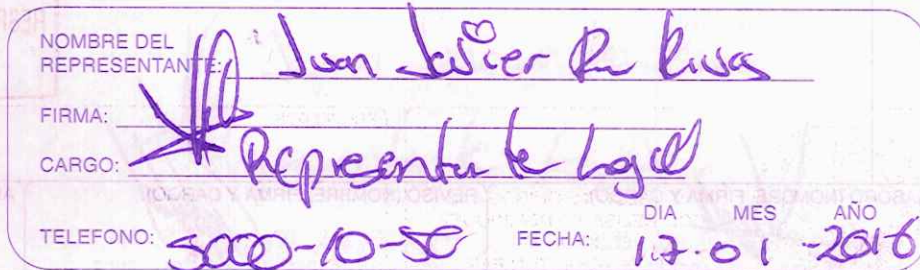 NOMBRE DEL
REPRESENTANTE: Juan Javier Rivas
FIRMA:
CARGO: Representante Legal
TELEFONO: 5000-10-50 FECHA: DIA MES AÑO
17-01-2016